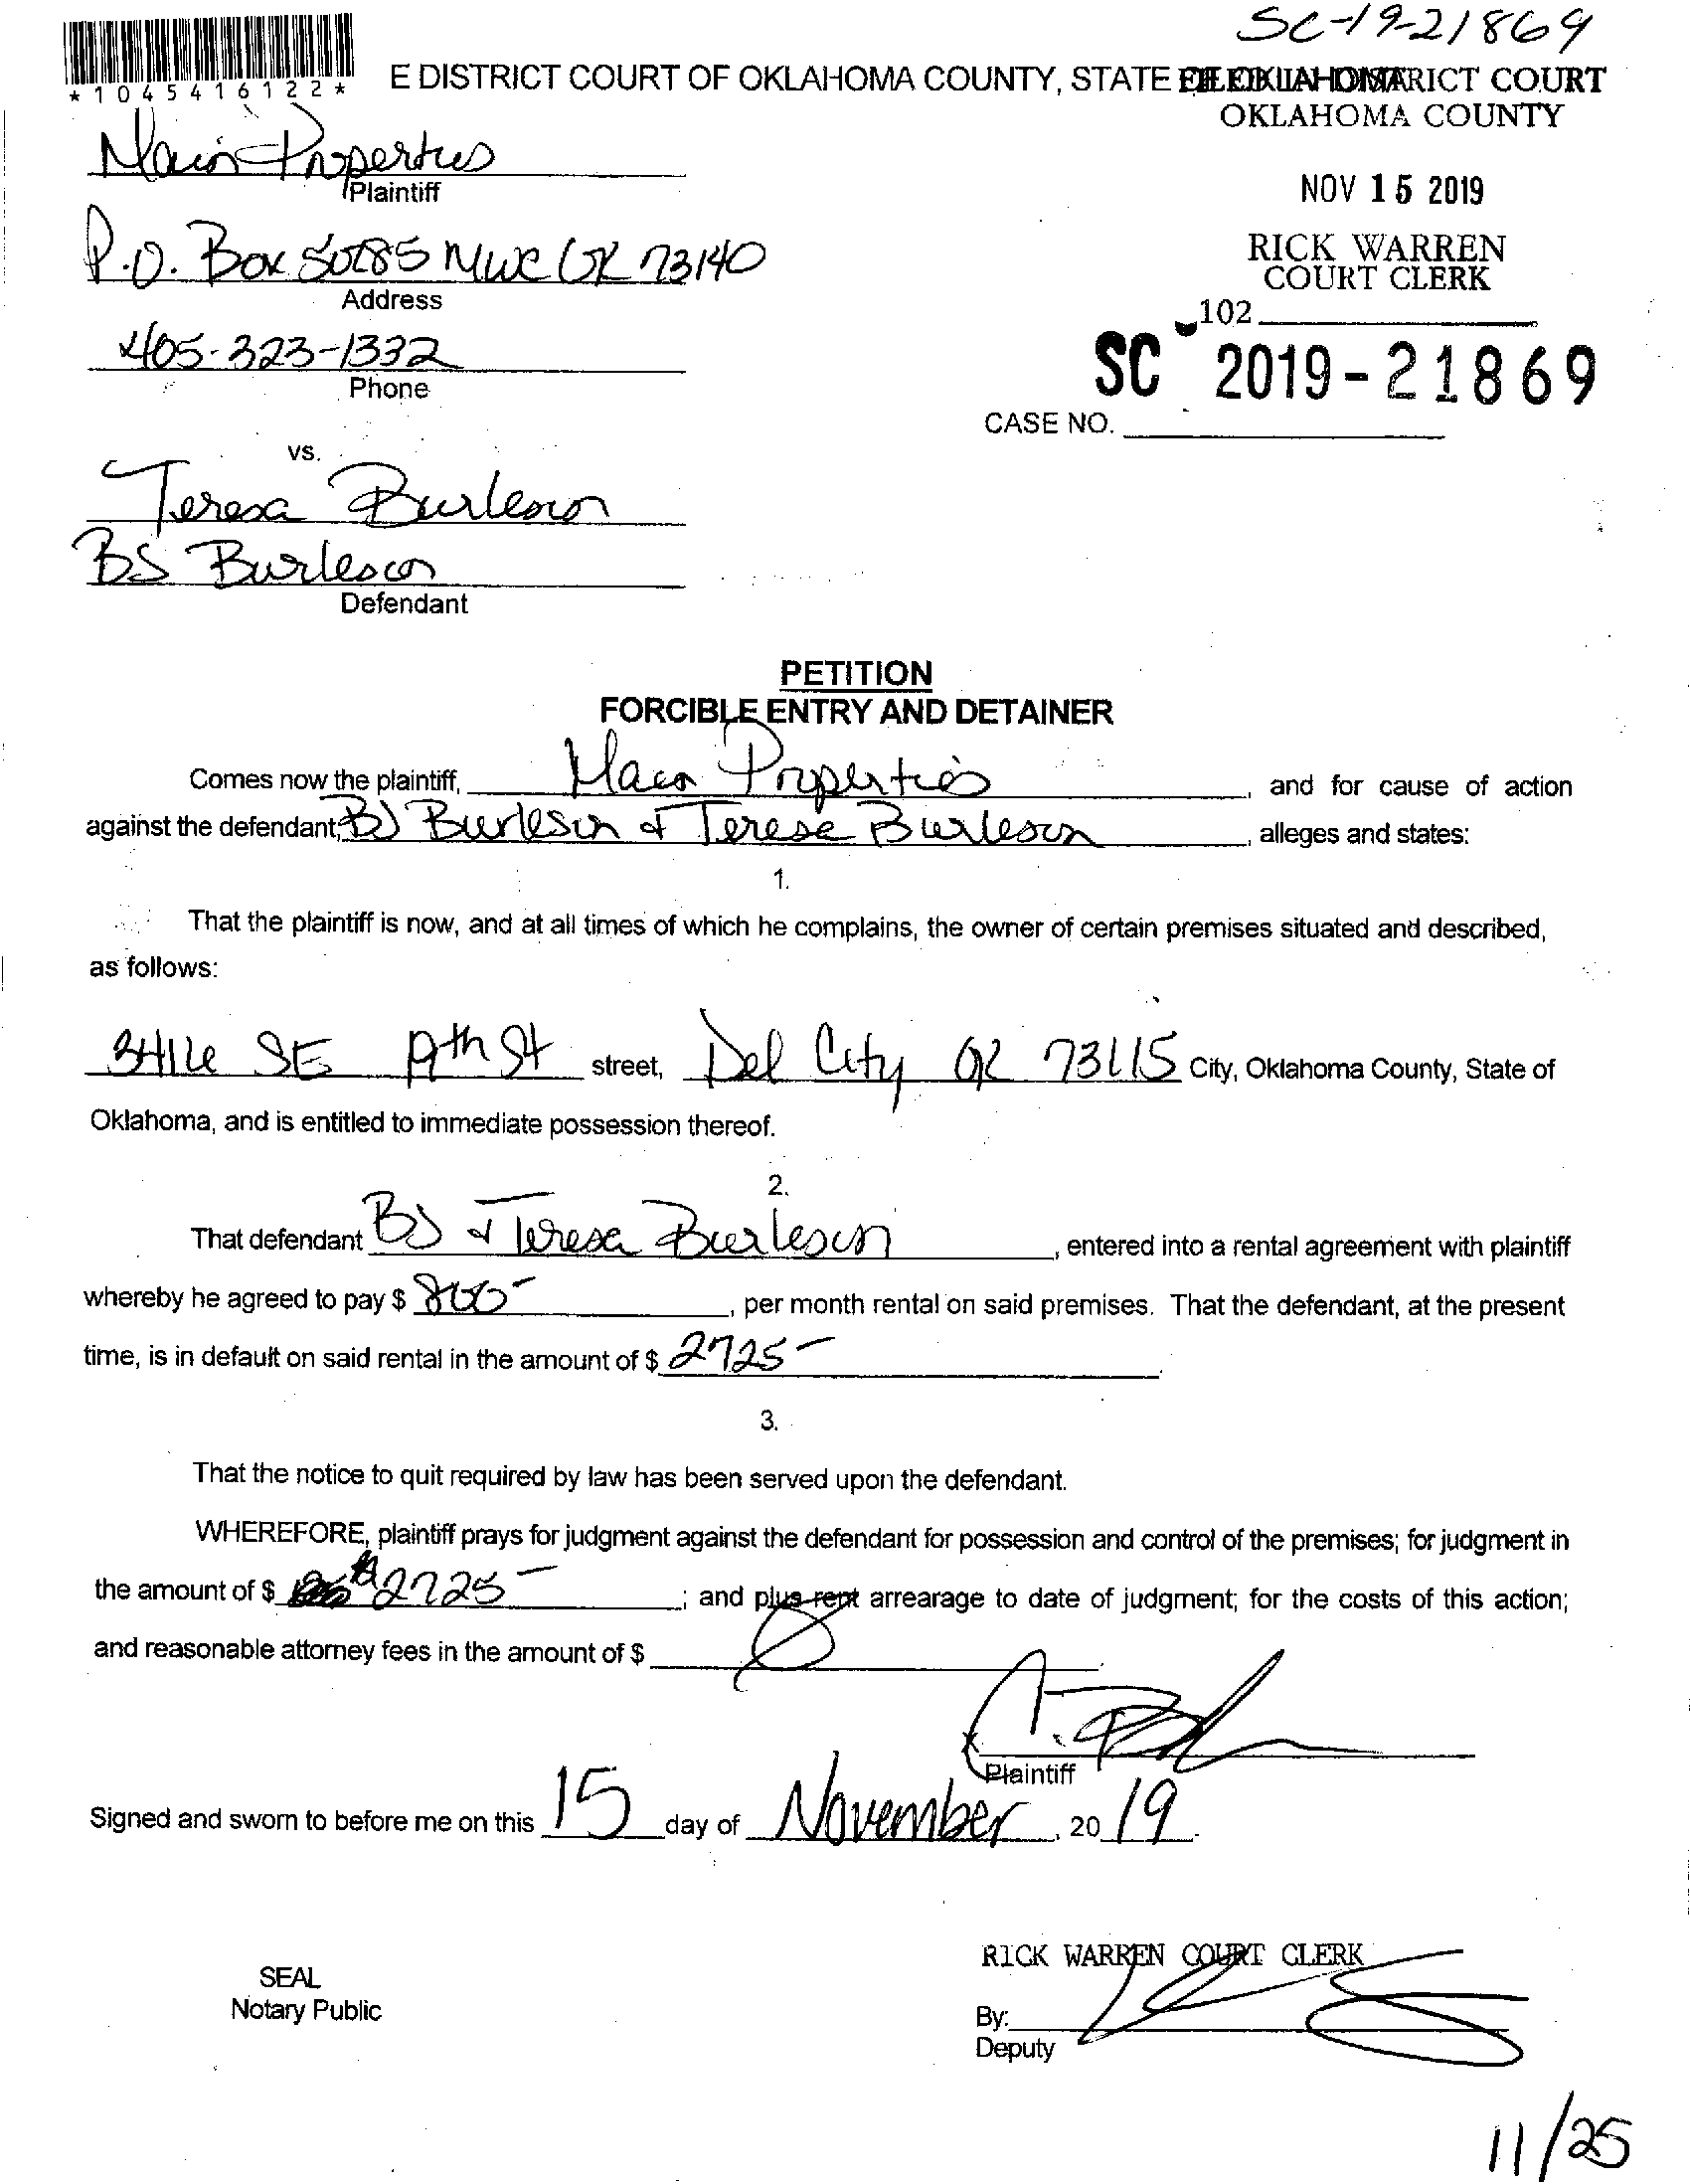 SC-19-21869
*1045416122*
E DISTRICT COURT OF OKLAHOMA COUNTY, STATE OF OKLAHOMA
FILED IN DISTRICT COURT
OKLAHOMA COUNTY
Properties
Plaintiff
NOV 15 2019
P.O. Box MWC OK 73140
Address
RICK WARREN
COURT CLERK
102
405-323-1332
Phone
SC 2019-21869
CASE NO.
vs.
Teresa Burleson
BS Burleson
Defendant
PETITION
FORCIBLE ENTRY AND DETAINER
Comes now the plaintiff, Properties and for cause of action
against the defendant, BJ Burleson & Terese Burleson, alleges and states:
1.
That the plaintiff is now, and at all times of which he complains, the owner of certain premises situated and described,
as follows:
SE St street, Del City OK 73115 City, Oklahoma County, State of
Oklahoma, and is entitled to immediate possession thereof.
2.
That defendant BJ & Teresa Burleson, entered into a rental agreement with plaintiff
whereby he agreed to pay $ 800-, per month rental on said premises. That the defendant, at the present
time, is in default on said rental in the amount of $ 2725-
3.
That the notice to quit required by law has been served upon the defendant.
WHEREFORE, plaintiff prays for judgment against the defendant for possession and control of the premises; for judgment in
the amount of $ $2725-; and plus rent arrearage to date of judgment; for the costs of this action;
and reasonable attorney fees in the amount of $
Plaintiff
Signed and sworn to before me on this 15 day of November, 2019.
RICK WARREN COURT CLERK
SEAL
Notary Public
By:
Deputy
11/25